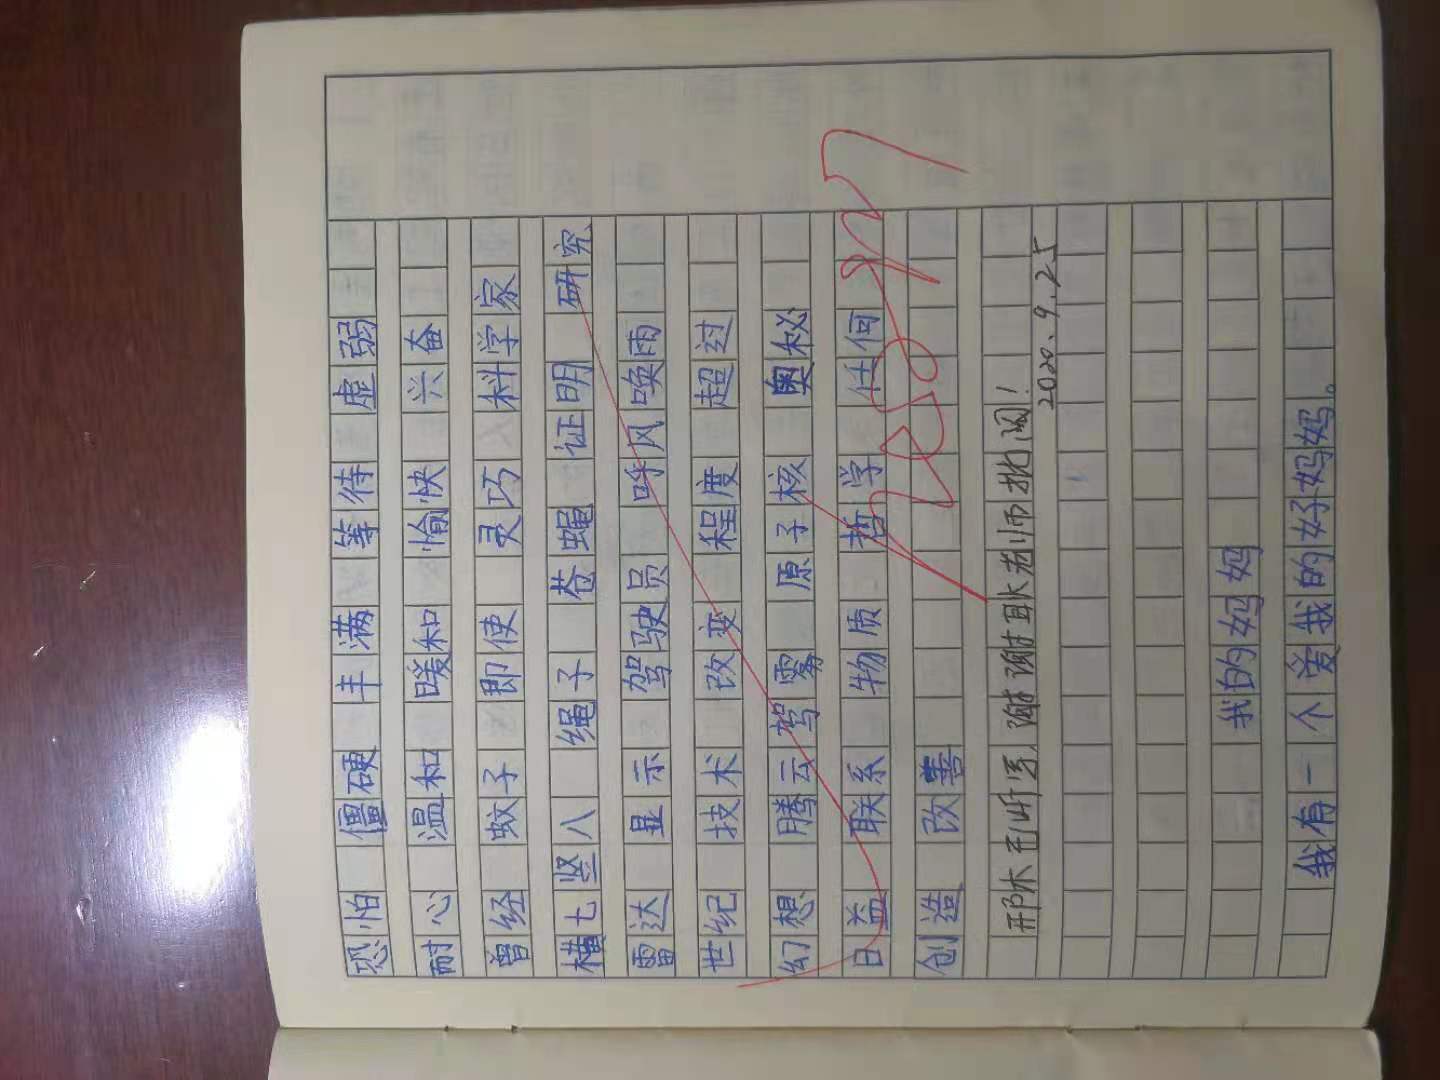 恐怕 僵硬 丰满 等待 虚弱
耐心 温和 暖和 愉快 兴奋
曾经 蚊子 即使 灵巧 科学家
横七竖八 绳子 苍蝇 证明 研究
雷达 显示 驾驶员 呼风唤雨
世纪 技术 改变 程度 超过
幻想 腾云驾雾 原子核 奥秘
日益 联系 物质 哲学 任何
创造 改善
已听写,谢谢耿老师批阅!
2020.9.25
我的妈妈
我有一个爱我的好妈妈。